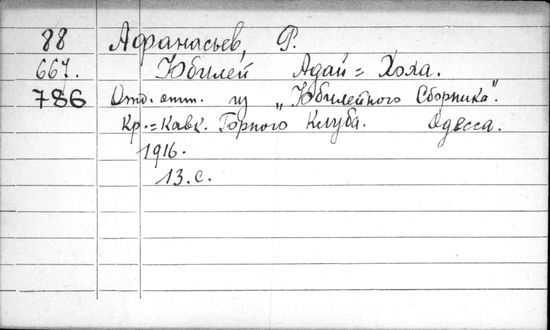 88 Афанасьев, Р.
667. Юбилей Адай=Хоха.
786 Отд. отт. из „Юбилейного Сборника".
Кр.=Кавк. Горного Клуба. Одесса.
1916.
13.с.